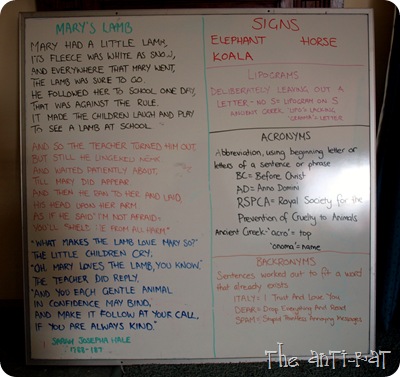 MARY'S LAMB
MARY HAD A LITTLE LAMB,
ITS FLEECE WAS WHITE AS SNOW,
AND EVERYWHERE THAT MARY WENT,
THE LAMB WAS SURE TO GO.
HE FOLLOWED HER TO SCHOOL ONE DAY,
THAT WAS AGAINST THE RULE.
IT MADE THE CHILDREN LAUGH AND PLAY
TO SEE A LAMB AT SCHOOL.
AND SO THE TEACHER TURNED HIM OUT.
BUT STILL HE LINGERED
AND WAITED PATIENTLY ABOUT,
TILL MARY DID APPEAR.
AND THEN HE RAN TO HER AND LAID,
HIS HEAD UPON HER ARM.
AS IF HE SAID I'M NOT AFRAID,
YOU'LL ME FROM ALL HARM"
"WHAT MAKES THE LAMB LOVE MARY SO?"
THE LITTLE CHILDREN CRY.
"OH, MARY LOVES THE LAMB, YOU KNOW."
THE TEACHER DID REPLY.
"AND YOU EACH GENTLE ANIMAL
IN CONFIDENCE MAY BIND,
AND MAKE IT FOLLOW AT YOUR CALL,
IF YOU ARE ALWAYS KIND."
SARAH JOSEPHA HALE
SIGNS
ELEPHANT HORSE
KOALA
LIPOGRAMS
DELIBERATELY LEAVING OUT A
LETTER - NO S = LIPOGRAM ON S
ANCIENT GREEK 'LIPO'= LACKING,
'GRAMMA'= LETTER
ACRONYMS
Abbreviation, using beginning letter or
letters of a sentence or phrase.
BC = Before Christ
AD = Anno Domini
RSPCA = Royal Society for the
Prevention of Cruelty to Animals
Ancient Greek: 'acro' = top
'onoma' = name
BACKRONYMS
Sentences worked out to fit a word
that already exists
ITALY = I Trust And Love You
DEAR = Drop Everything And Read
SPAM = Stupid Pointless Annoying Messages
The Anti-Rat